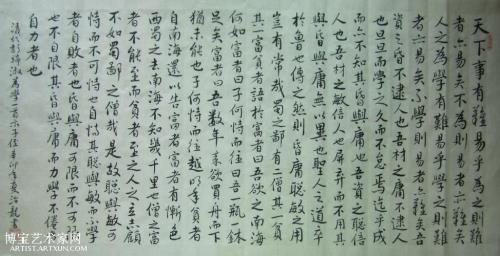 天下事有難易乎為之則難
者亦易矣不為則易者亦難矣
人之為學有難易乎學之則難
者亦易矣不學則易者亦難矣吾
資之昏不逮人也吾材之庸不逮人
也旦旦而學之久而不怠焉迄乎成
而亦不知其昏與庸也吾資之聰倍
人也吾材之敏倍人也屏棄而不用其
與昏與庸無以異也聖人之道卒
於魯也傳之然則昏庸聰敏之用
豈有常哉蜀之鄙有二僧其一貧
其一富貧者語於富者曰吾欲之南海
何如富者曰子何恃而往曰吾一瓶一鉢
足矣富者曰吾數年來欲買舟而下
猶未能也子何恃而往越明年貧者
自南海還以告富者富者有慚色
西蜀之去南海不知幾千里也僧之富
者不能至而貧者至之人之立志顧
不如蜀鄙之僧哉是故聰與敏可
恃而不可恃也自恃其聰與敏而不學
者自敗者也昏與庸可限而不可限
也不自限其昏與庸而力學不倦
自力者也
清代彭端淑為學一首示子侄辛卯年夏治龍書
博宝艺术家网
Artist.artxun.com